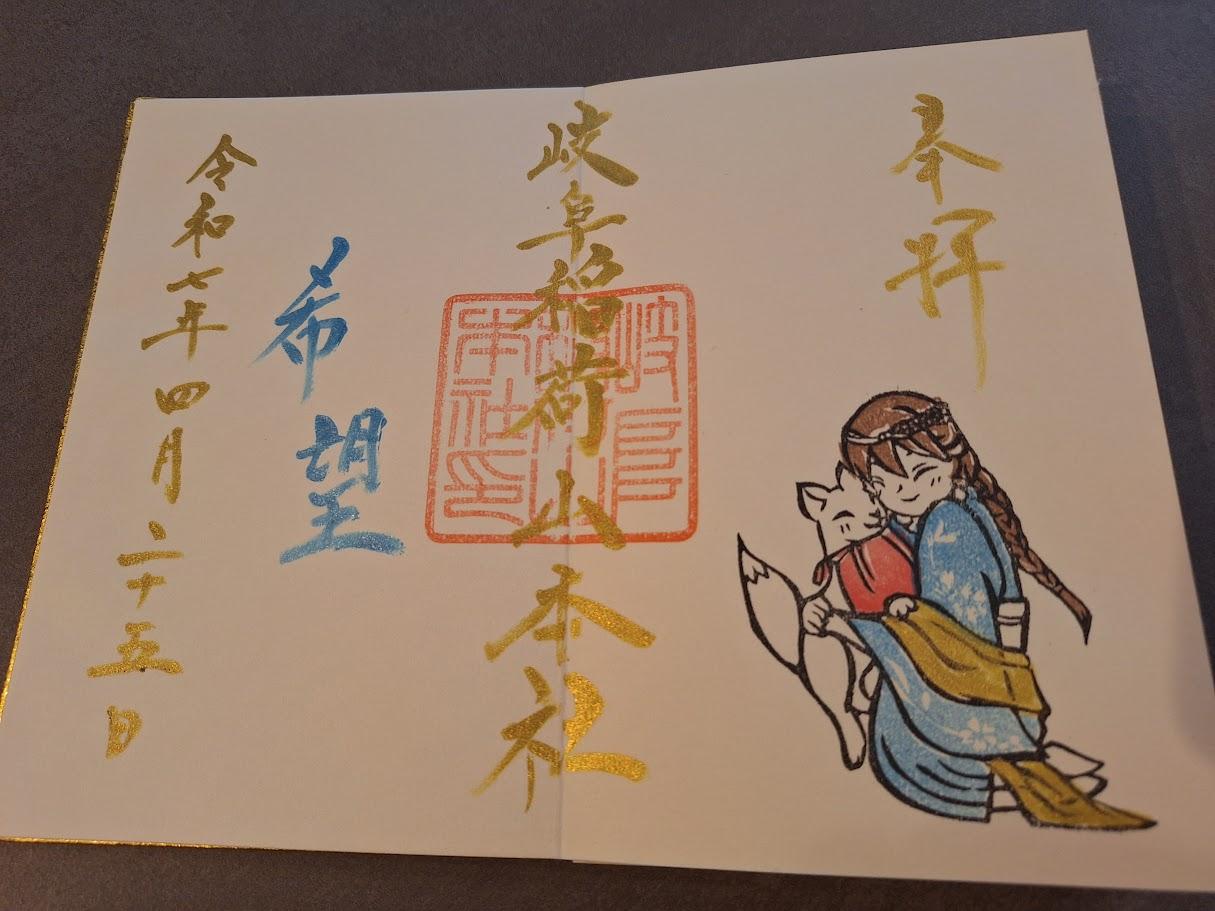 奉拝
岐阜稲荷山本社
岐阜
本社印
希望
令和七年四月二十五日